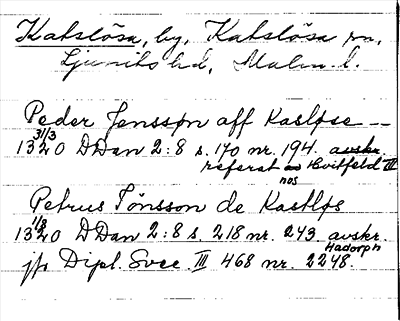 Katslösa, by, Katslösa sn,
Ljunits hd, Malm. l.
Peder Jensspn aff Kaslpse --
31/3
1320 DDan 2:8 s. 170 nr. 194. avskr.
referat hos Hvitfeld III
Petrus Tönsson de Kastlps
1/8
1320 DDan 2:8 s. 218 nr. 243 avskr.
Hadorph
jfr Dipl. Svec III 468 nr. 2248.